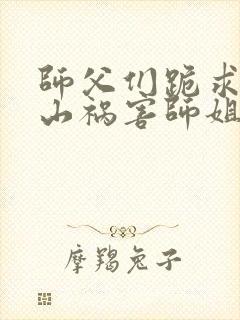 師父们跪求
山祸害師姐
摩羯兔子